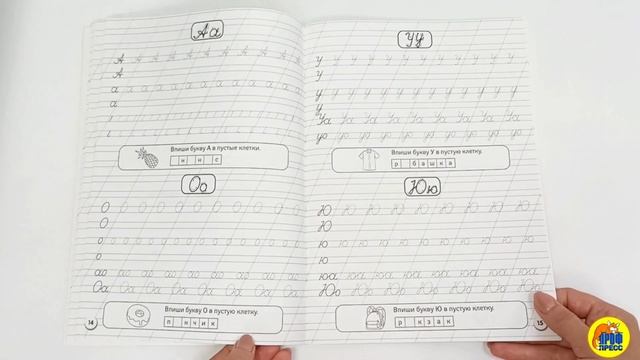 Аа
А А А А А А А А А
А
а а а а а а а а а а а
а
Впиши букву А в пустые клетки.
н н с
Оо
О О О О О О О О О О
О
о о о о о о о о о о о
о
ао ао ао ао ао ао ао ао
Оа Оа Оа Оа Оа Оа Оа Оа
Впиши букву О в пустую клетку.
п н ч и к
14
Уу
У У У У У У У У У У
У
у у у у у у у у у у
у
Уа Уа Уа Уа Уа Уа Уа Уа
уо уо уо уо уо уо уо уо
Впиши букву У в пустую клетку.
р б а ш к а
Юю
Ю Ю Ю Ю Ю Ю Ю Ю Ю
Ю
ю ю ю ю ю ю ю ю ю ю
ю
юа юа юа юа юа юа юа юа
Юо Юо Юо Юо Юо Юо Юо Юо
Впиши букву Ю в пустую клетку.
р к з а к
15
ПРОФ
ПРЕСС